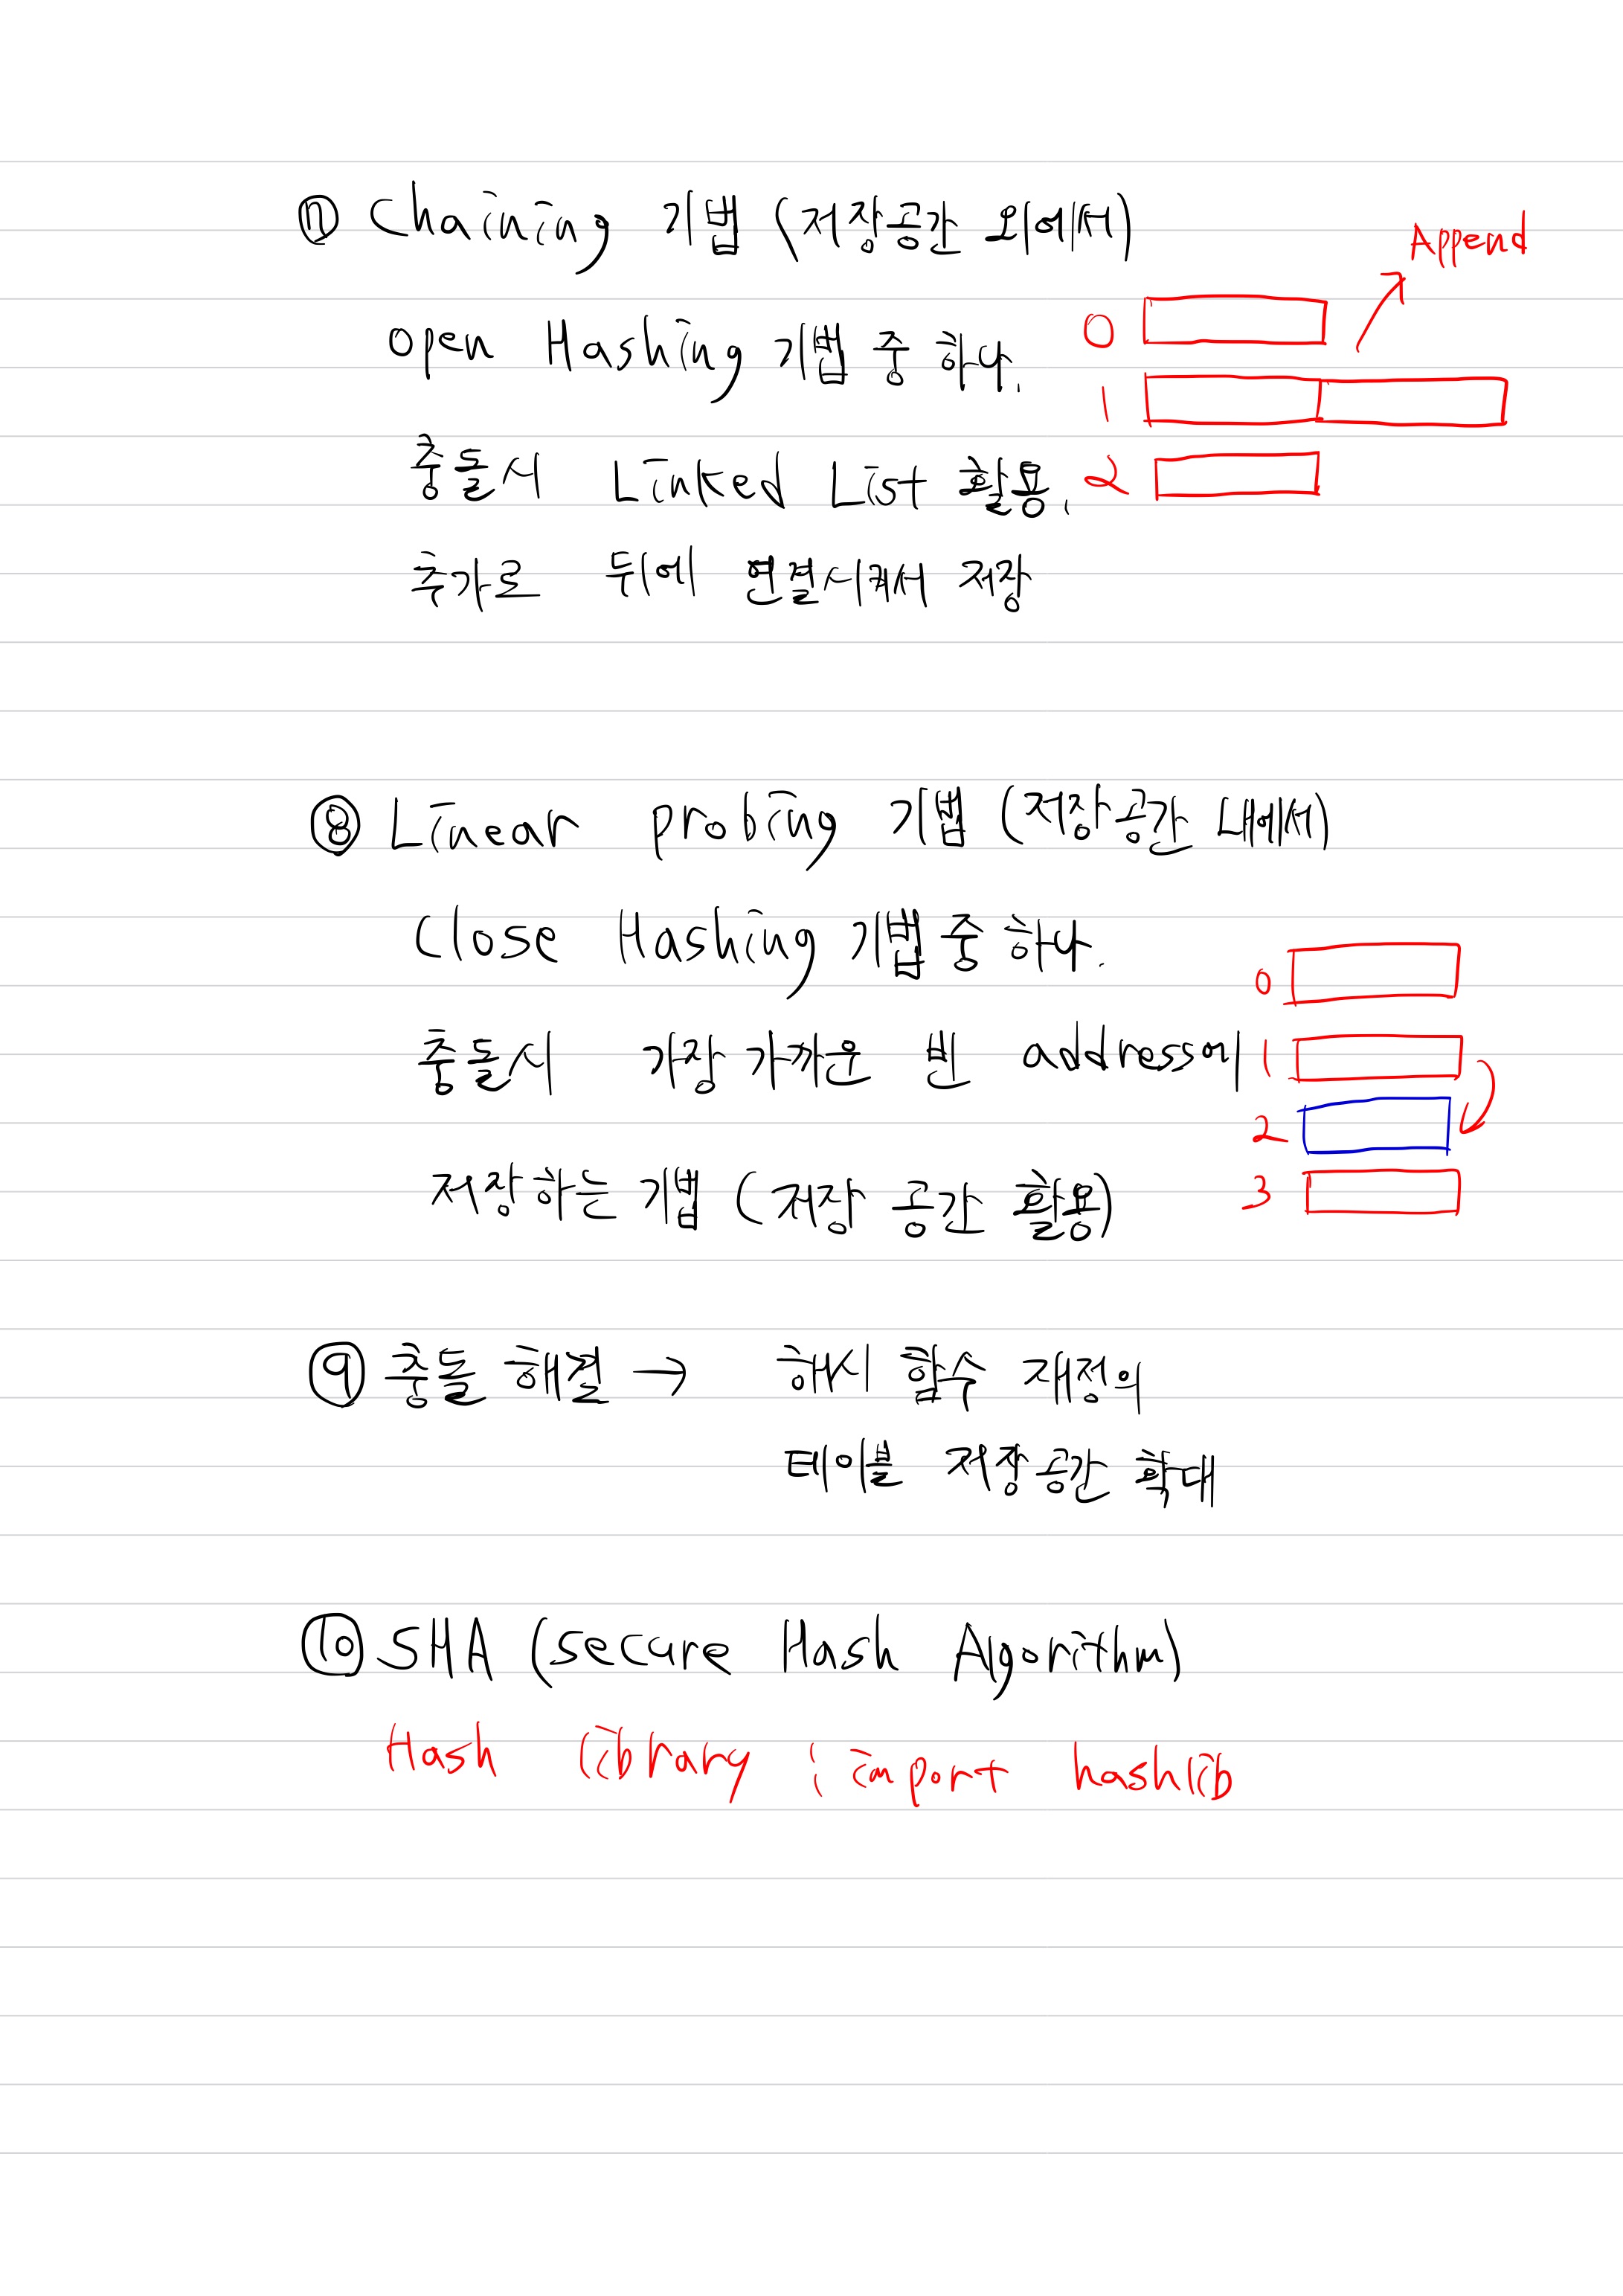 ⑦ Chaining 기법 (저장공간 외에서)
Append
open Hashing 기법 중 하나.
0
1
충돌시 Linked List 활용.
2
추가로 뒤에 연결시켜서 저장
⑧ Linear probing 기법 (저장공간 내에서)
Close Hashing 기법 중 하나.
0
충돌시 가장 가까운 빈 address에
1
2
저장하는 기법 (저장 공간 활용)
3
⑨ 충돌 해결 → 해시 함수 재정의
테이블 저장공간 확대
⑩ SHA (Secure Hash Algorithm)
Hash library : import hashlib